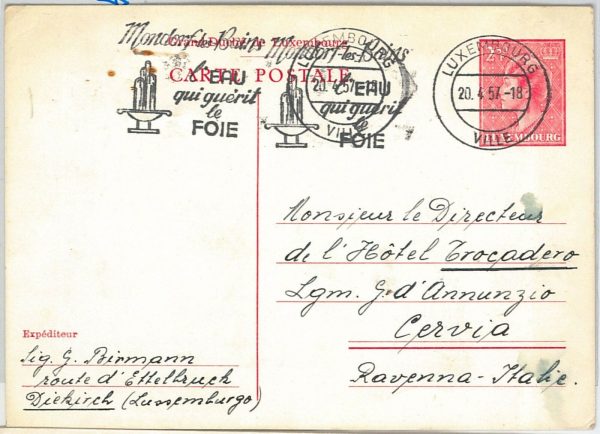 Mondorf-les-Bains Mondorf-les-Bains
Grand-Duché de Luxembourg
CARTE POSTALE
l'EAU
qui guérit
le
FOIE
l'EAU
qui guérit
le
FOIE
LUXEMBOURG
20.4.57-18
VILLE
LUXEMBOURG
20.4.57-18
VILLE
LUXEMBOURG
Monsieur le Directeur
de l'Hôtel Trocadero
Lgm. G. d'Annunzio
Cervia
Ravenna - Italie.
Expéditeur
Sig. G. Birmann
route d'Ettelbruck
Diekirch (Lussemburgo)